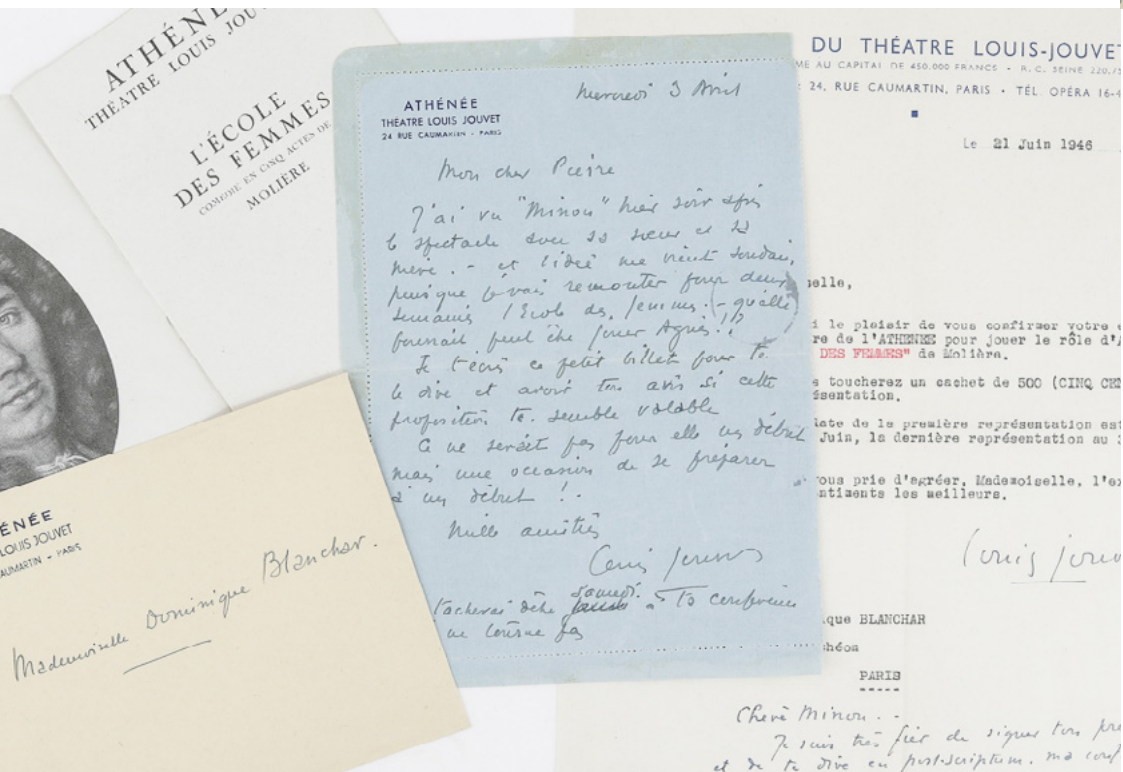 ATHÉNÉE
THÉATRE LOUIS JOU
L'ÉCOLE
DES FEMMES
COMÉDIE EN CINQ ACTES DE
MOLIÈRE
ÉNÉE
LOUIS JOUVET
AUMARTIN - PARIS
Mademoiselle Dominique Blanchar.
ATHÉNÉE
THEATRE LOUIS JOUVET
24 RUE CAUMARTIN - PARIS
Mercredi 3 Avril
Mon cher Pierre
J'ai vu "Minou" hier soir après
le spectacle avec sa sœur et sa
mère. - et l'idée me vient soudain,
puisque je vais remonter pour deux
semaines l'Ecole des femmes. - qu'elle
pourrait peut être jouer Agnès. !?
Je t'écris ce petit billet pour te
le dire et avoir ton avis si cette
proposition te semble valable
Ce ne serait pas pour elle un début
mais une occasion de se préparer
à un début !.
Mille amitiés
Louis Jouvet
tacherai d'être samedi à ta conférence
ne tourne pas
DU THÉATRE LOUIS-JOUVET
ME AU CAPITAL DE 450.000 FRANCS • R. C. SEINE 220.75
24, RUE CAUMARTIN, PARIS • TÉL. OPÉRA 16-4
Le 21 Juin 1946
selle,
i le plaisir de vous confirmer votre e
re de l'ATHENEE pour jouer le rôle d'A
DES FEMMES" de Molière.
s toucherez un cachet de 500 (CINQ CEN
ésentation.
date de la première représentation est
Juin, la dernière représentation au 3
vous prie d'agréer, Mademoiselle, l'ex
ntiments les meilleurs.
Louis Jouv
que BLANCHAR
héon
PARIS
Chère Minou. -
Je suis très fier de signer ton pre
et de te dire en post-scriptum. ma conf